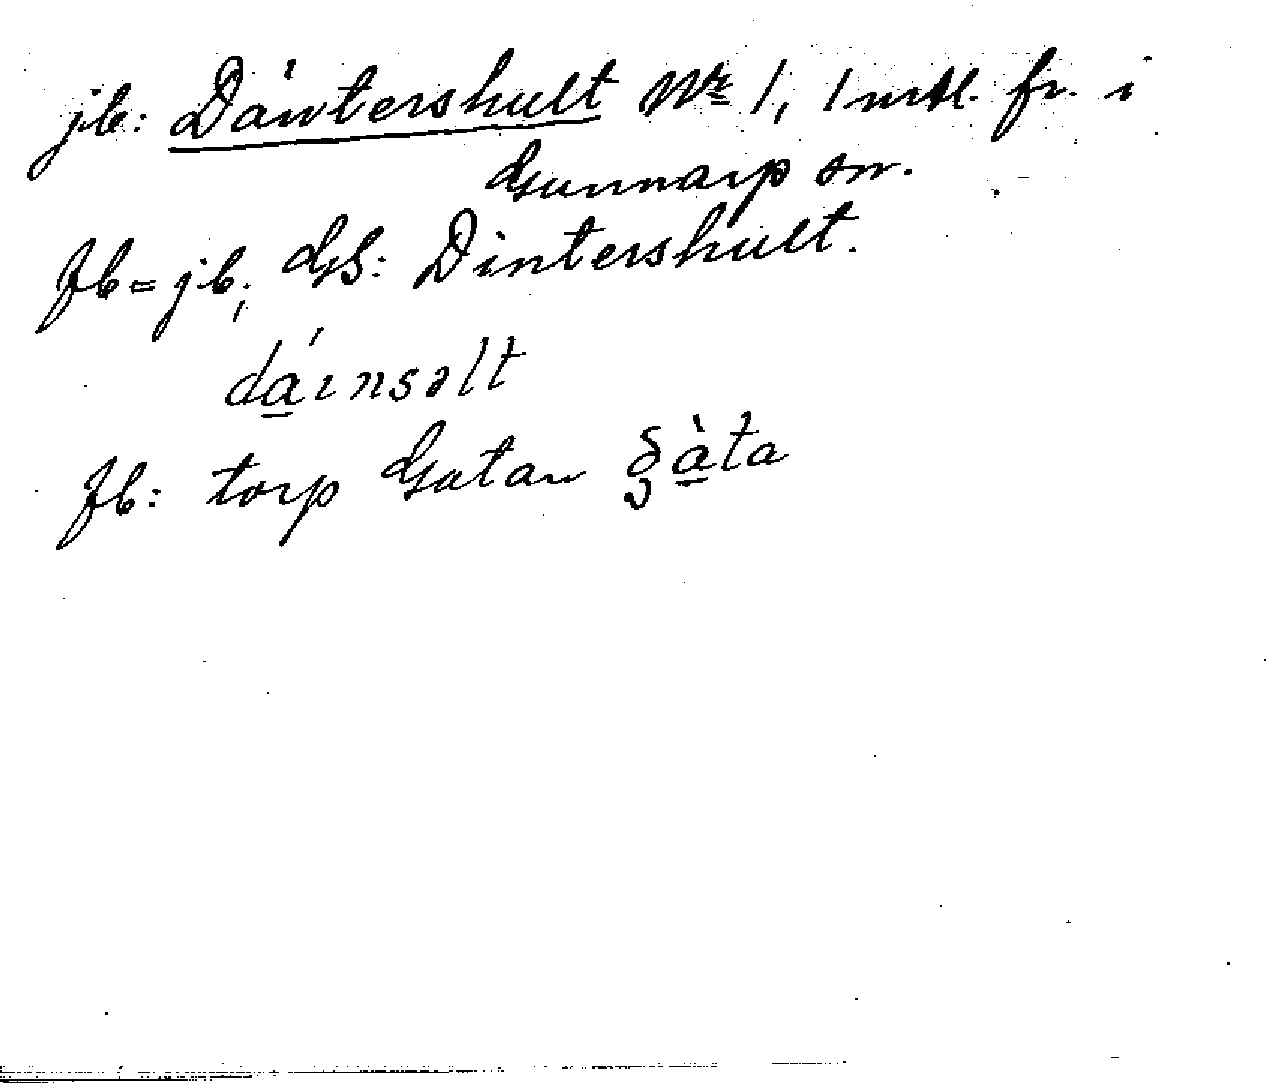 jb: Däntershult № 1, 1 mtl. fr. i
Gunnarp sn.
Jb = jb; GS: Dintershult.
dáınsəlt
Jb: torp Gatan gàta